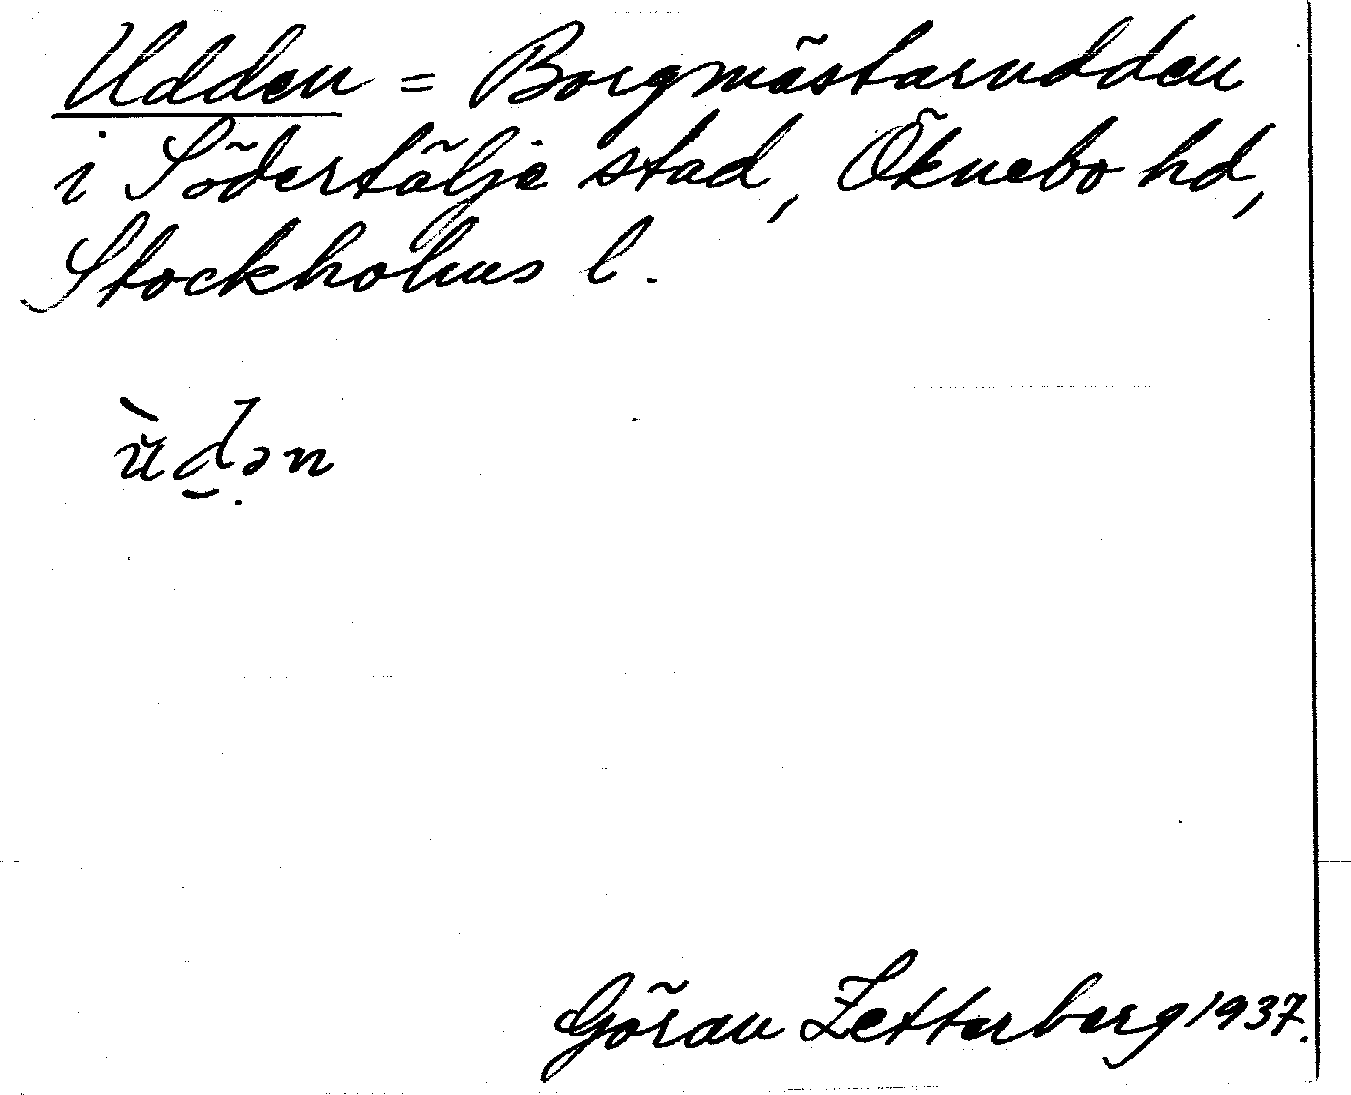 Udden = Borgmästarudden
i Södertälje stad, Öknebo hd,
Stockholms l.
ùd̠ən
Göran Zetterberg 1937.